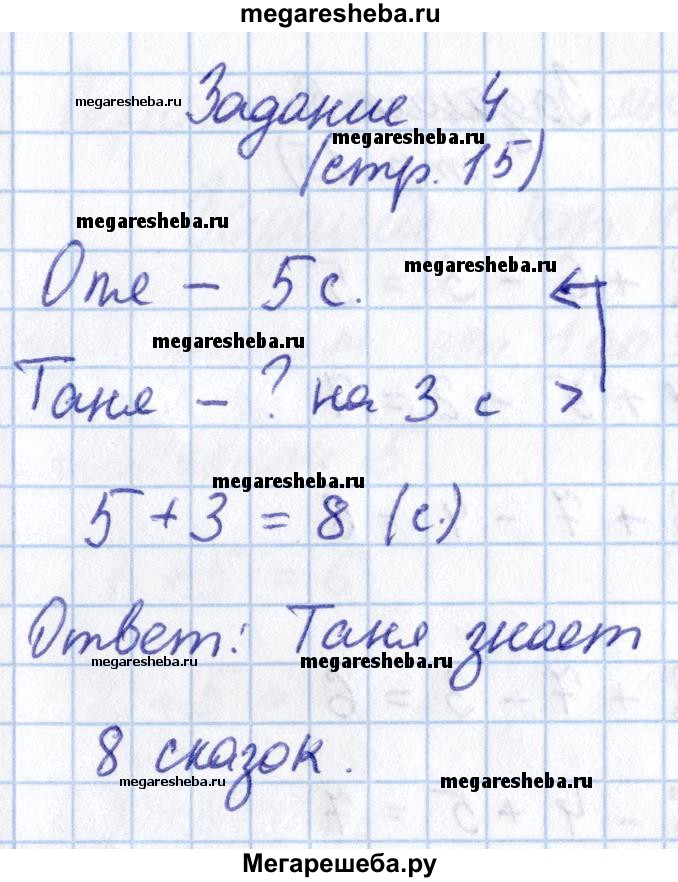 megaresheba.ru
Задание 4
megaresheba.ru
megaresheba.ru
(стр. 15)
megaresheba.ru
Оле – 5 с.
megaresheba.ru
megaresheba.ru
Таня – ? на 3 с >
megaresheba.ru
5 + 3 = 8 (с.)
megaresheba.ru
Ответ: Таня знает
megaresheba.ru
megaresheba.ru
8 сказок.
megaresheba.ru
megaresheba.ru
Мегарешеба.ру